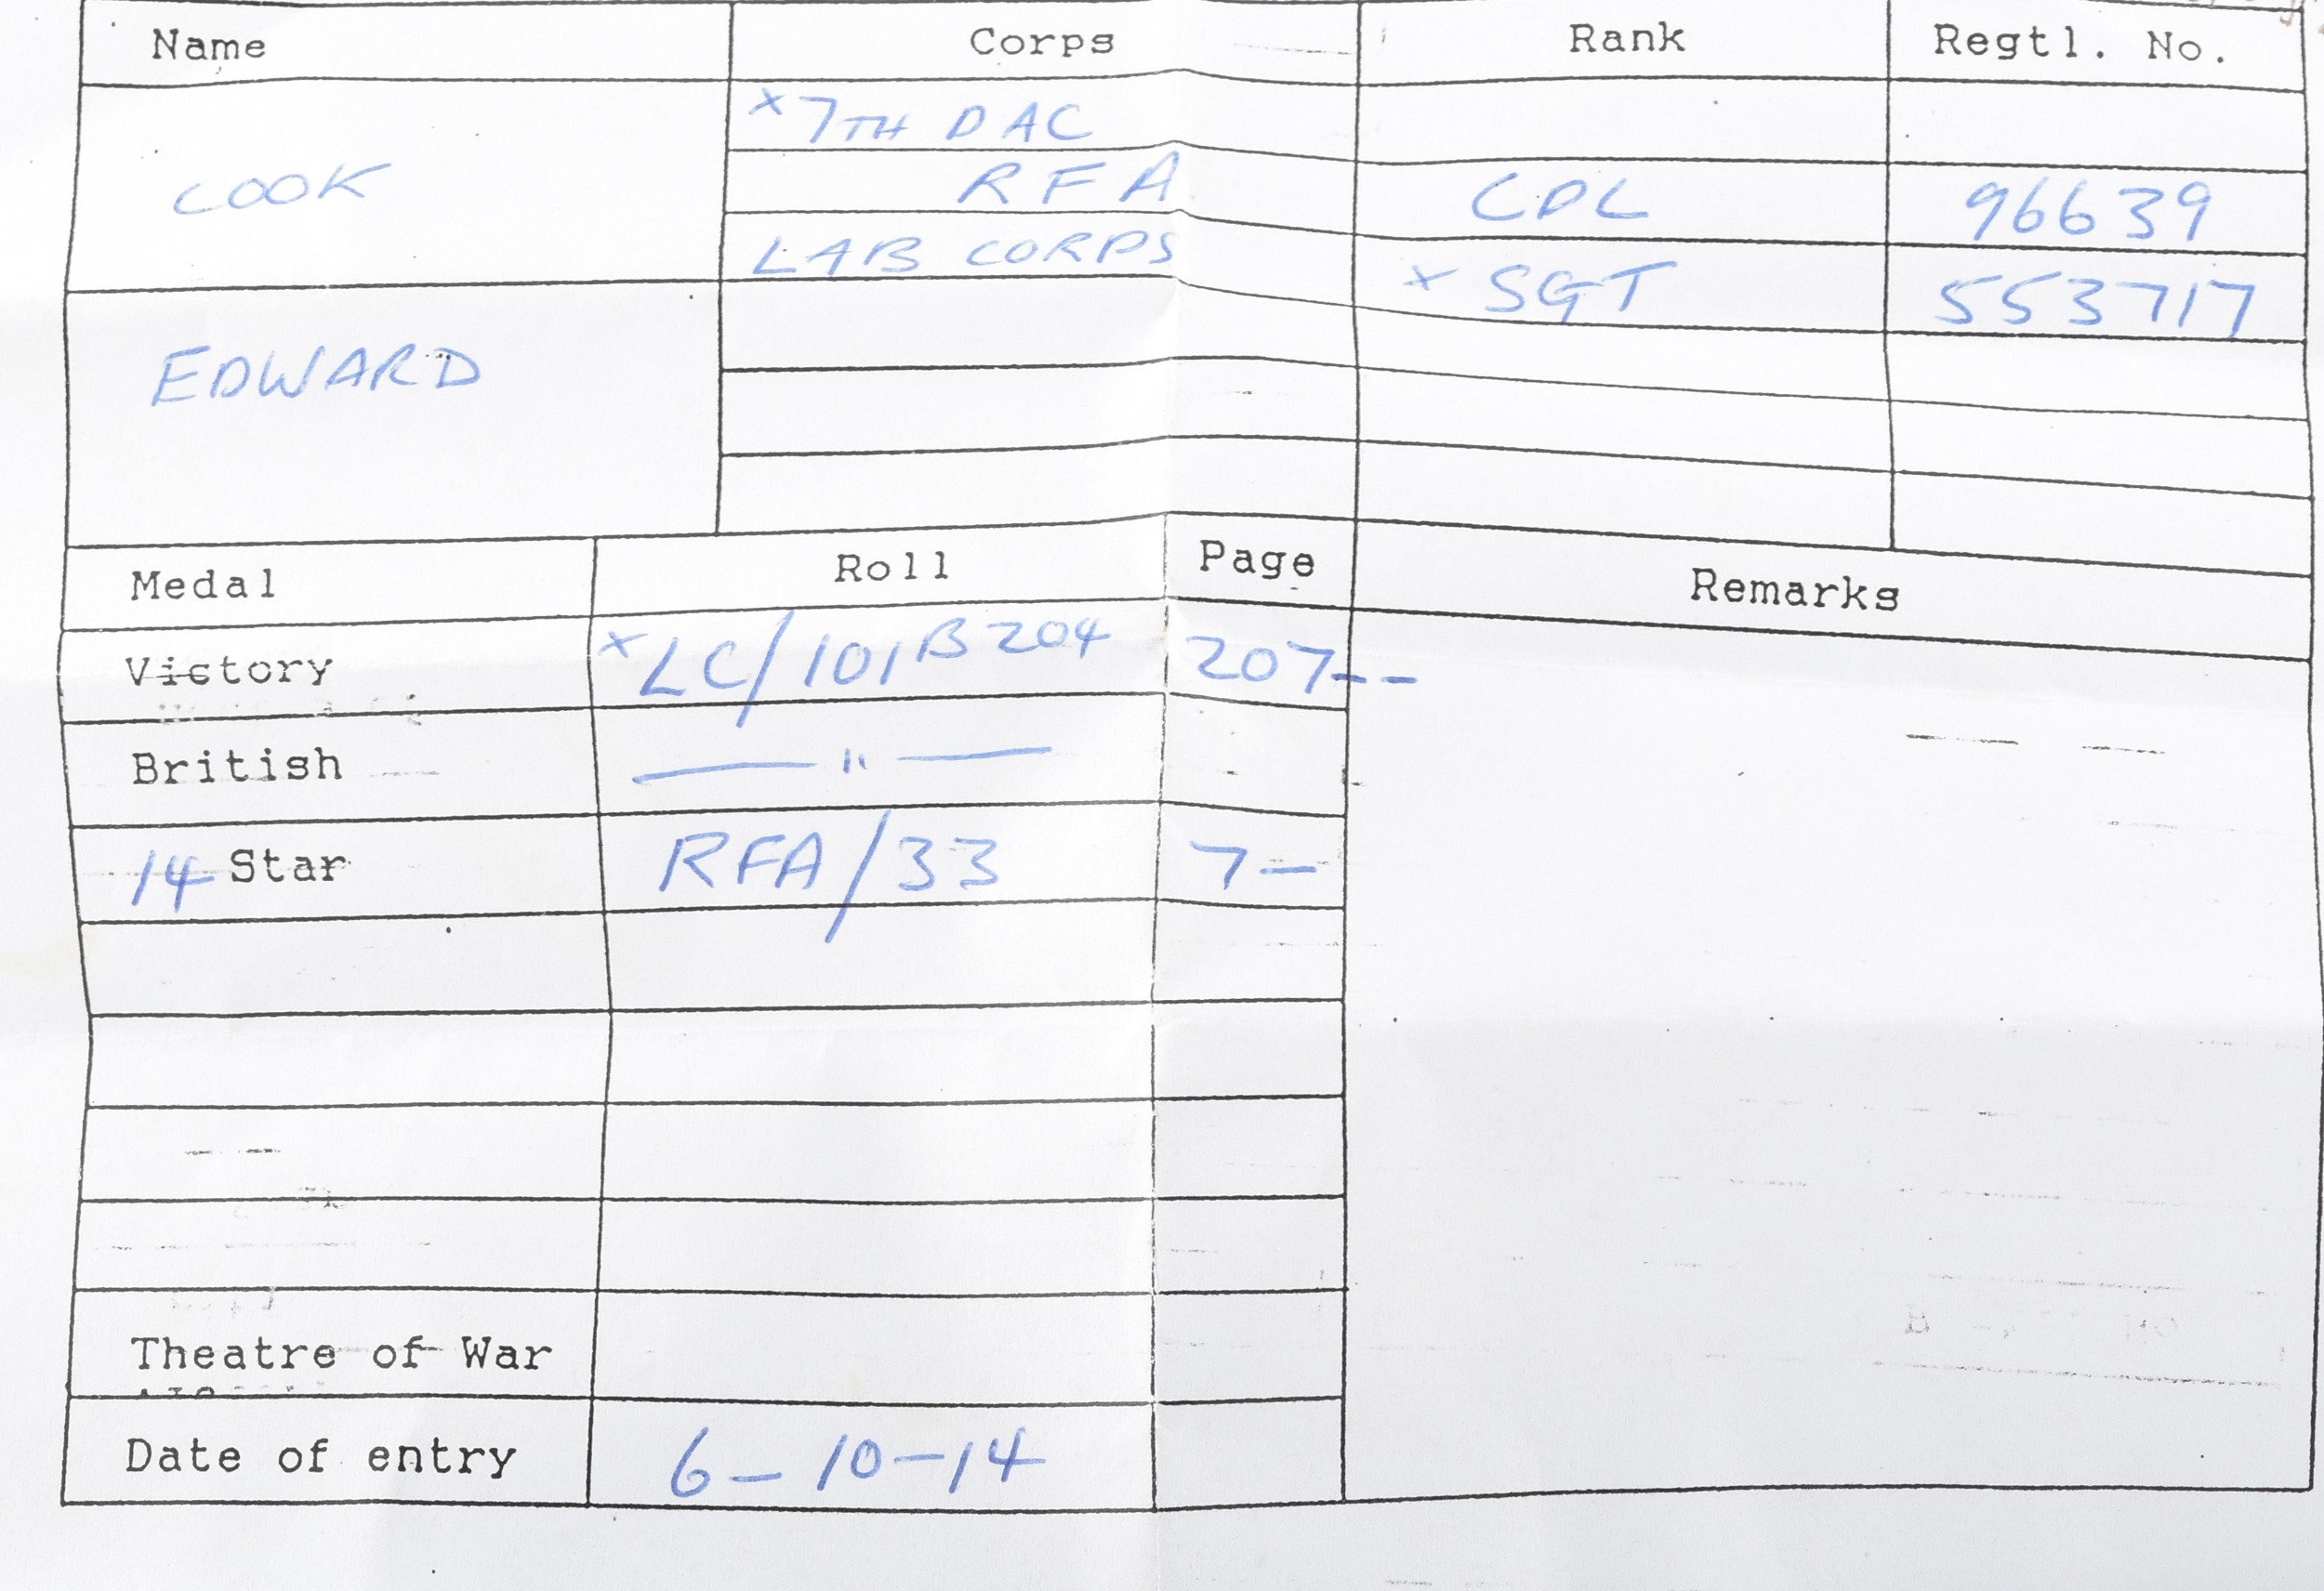 Name Corps Rank Regtl. No.
x 7TH DAC
COOK RFA CPL 96639
LAB CORPS x SGT 553717
EDWARD
Medal Roll Page Remarks
Victory x LC/101 B 204 207--
British — " —
14 Star RFA/33 7—
Theatre of War
Date of entry 6-10-14